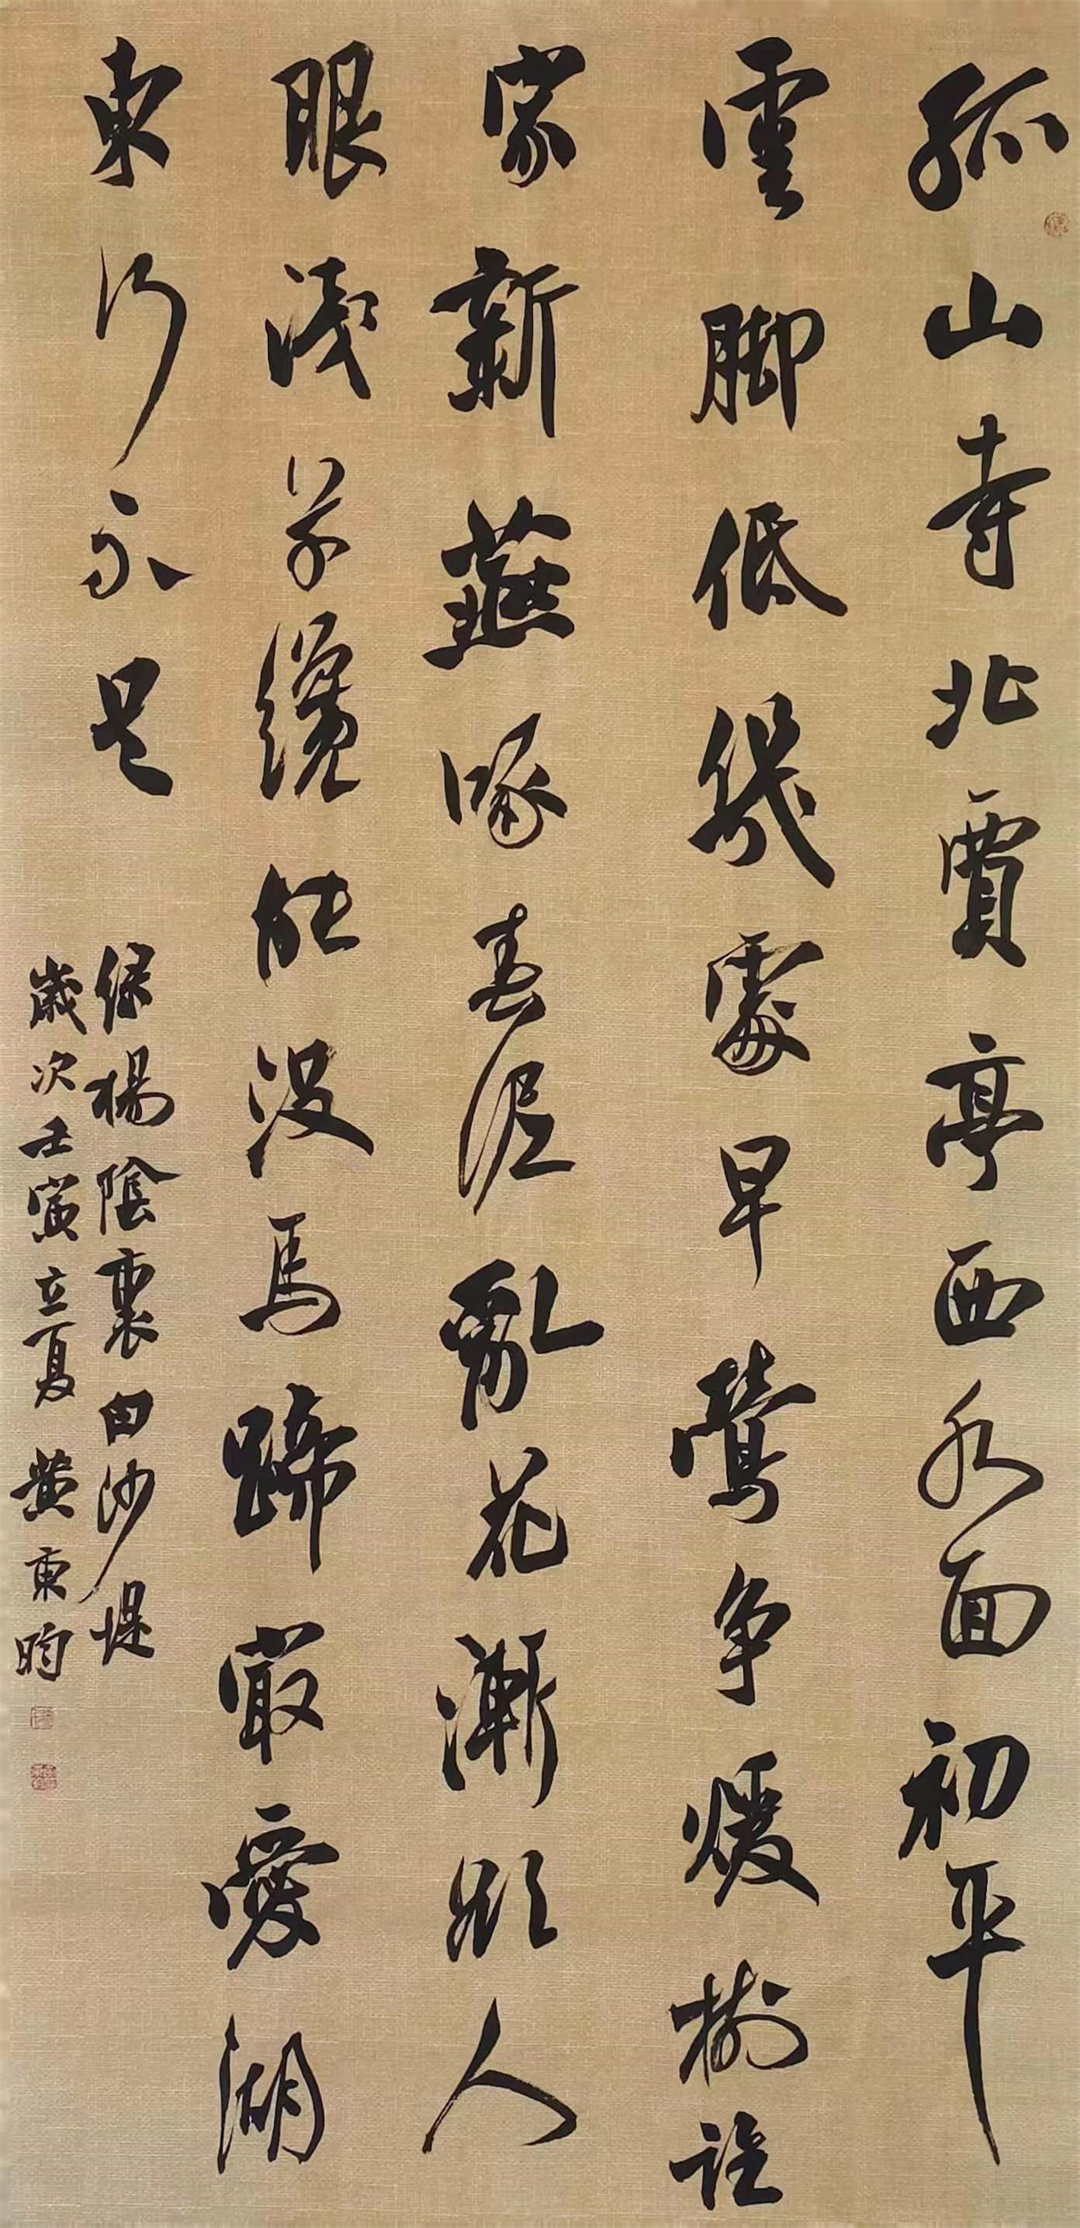 孤山寺北賈亭西水面初平
雲脚低幾處早鶯争暖樹誰
家新燕啄春泥亂花漸欲人
眼淺草纔能没馬蹄最愛湖
東行不足
绿楊陰裏白沙堤
歲次壬寅立夏黄東昀